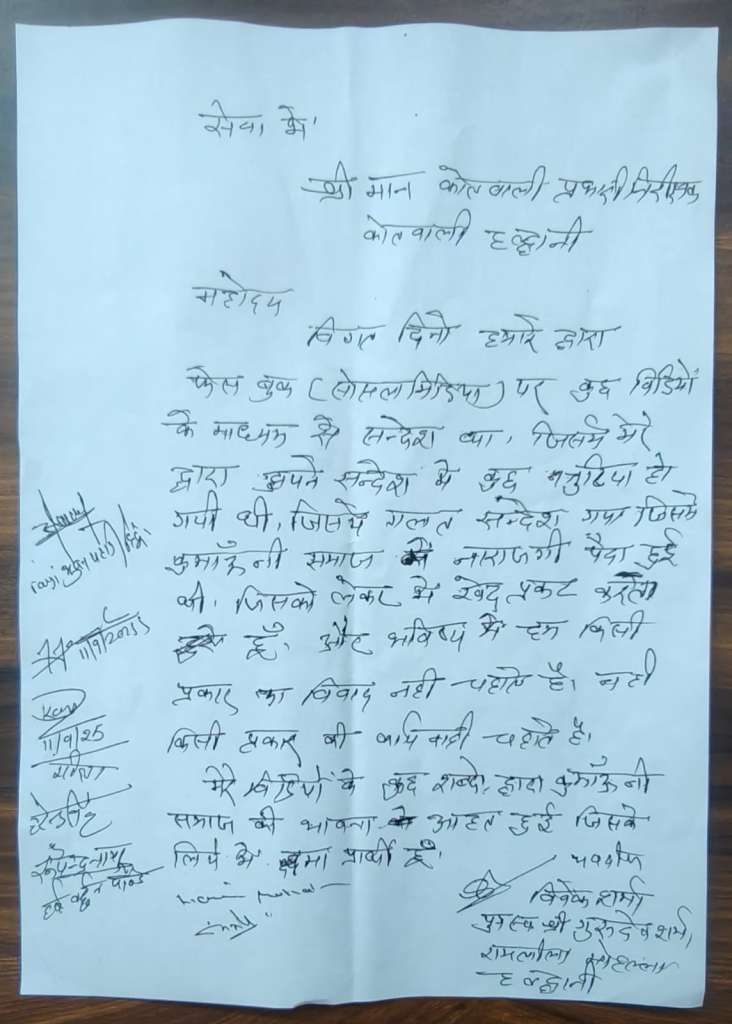 सेवा में
श्री मान कोतवाली प्रभारी निरीक्षक
कोतवाली हल्द्वानी
महोदय
विगत दिनो हमारे द्वारा
फेस बुक (सोसल मिडिया) पर कुछ विडियों
के माध्यम से सन्देश था, जिसमें मेरे
द्वारा अपने सन्देश में कुछ त्रुटिया हो
गयी थी, जिसमें गलत सन्देश गया जिसमें
कुमाऊँनी समाज में नाराजगी पैदा हुई
थी, जिसको लेकर मै खेद प्रकट करता
हूँ, और भविष्य में हम किसी
प्रकार का विवाद नही चहाते है। नही
किसी प्रकार की कार्यवाही चहाते है।
मेरे विडियों के कुछ शब्दो द्वारा कुमाऊँनी
समाज की भावना आहत हुई जिसके
लिये मै क्षमा प्रार्थी हूँ।
11/9/2025
11/9/25
भवदीय
विवेक शर्मा
पुत्र श्री गुरुदेव शर्मा,
रामलीला मोहल्ला
हल्द्वानी